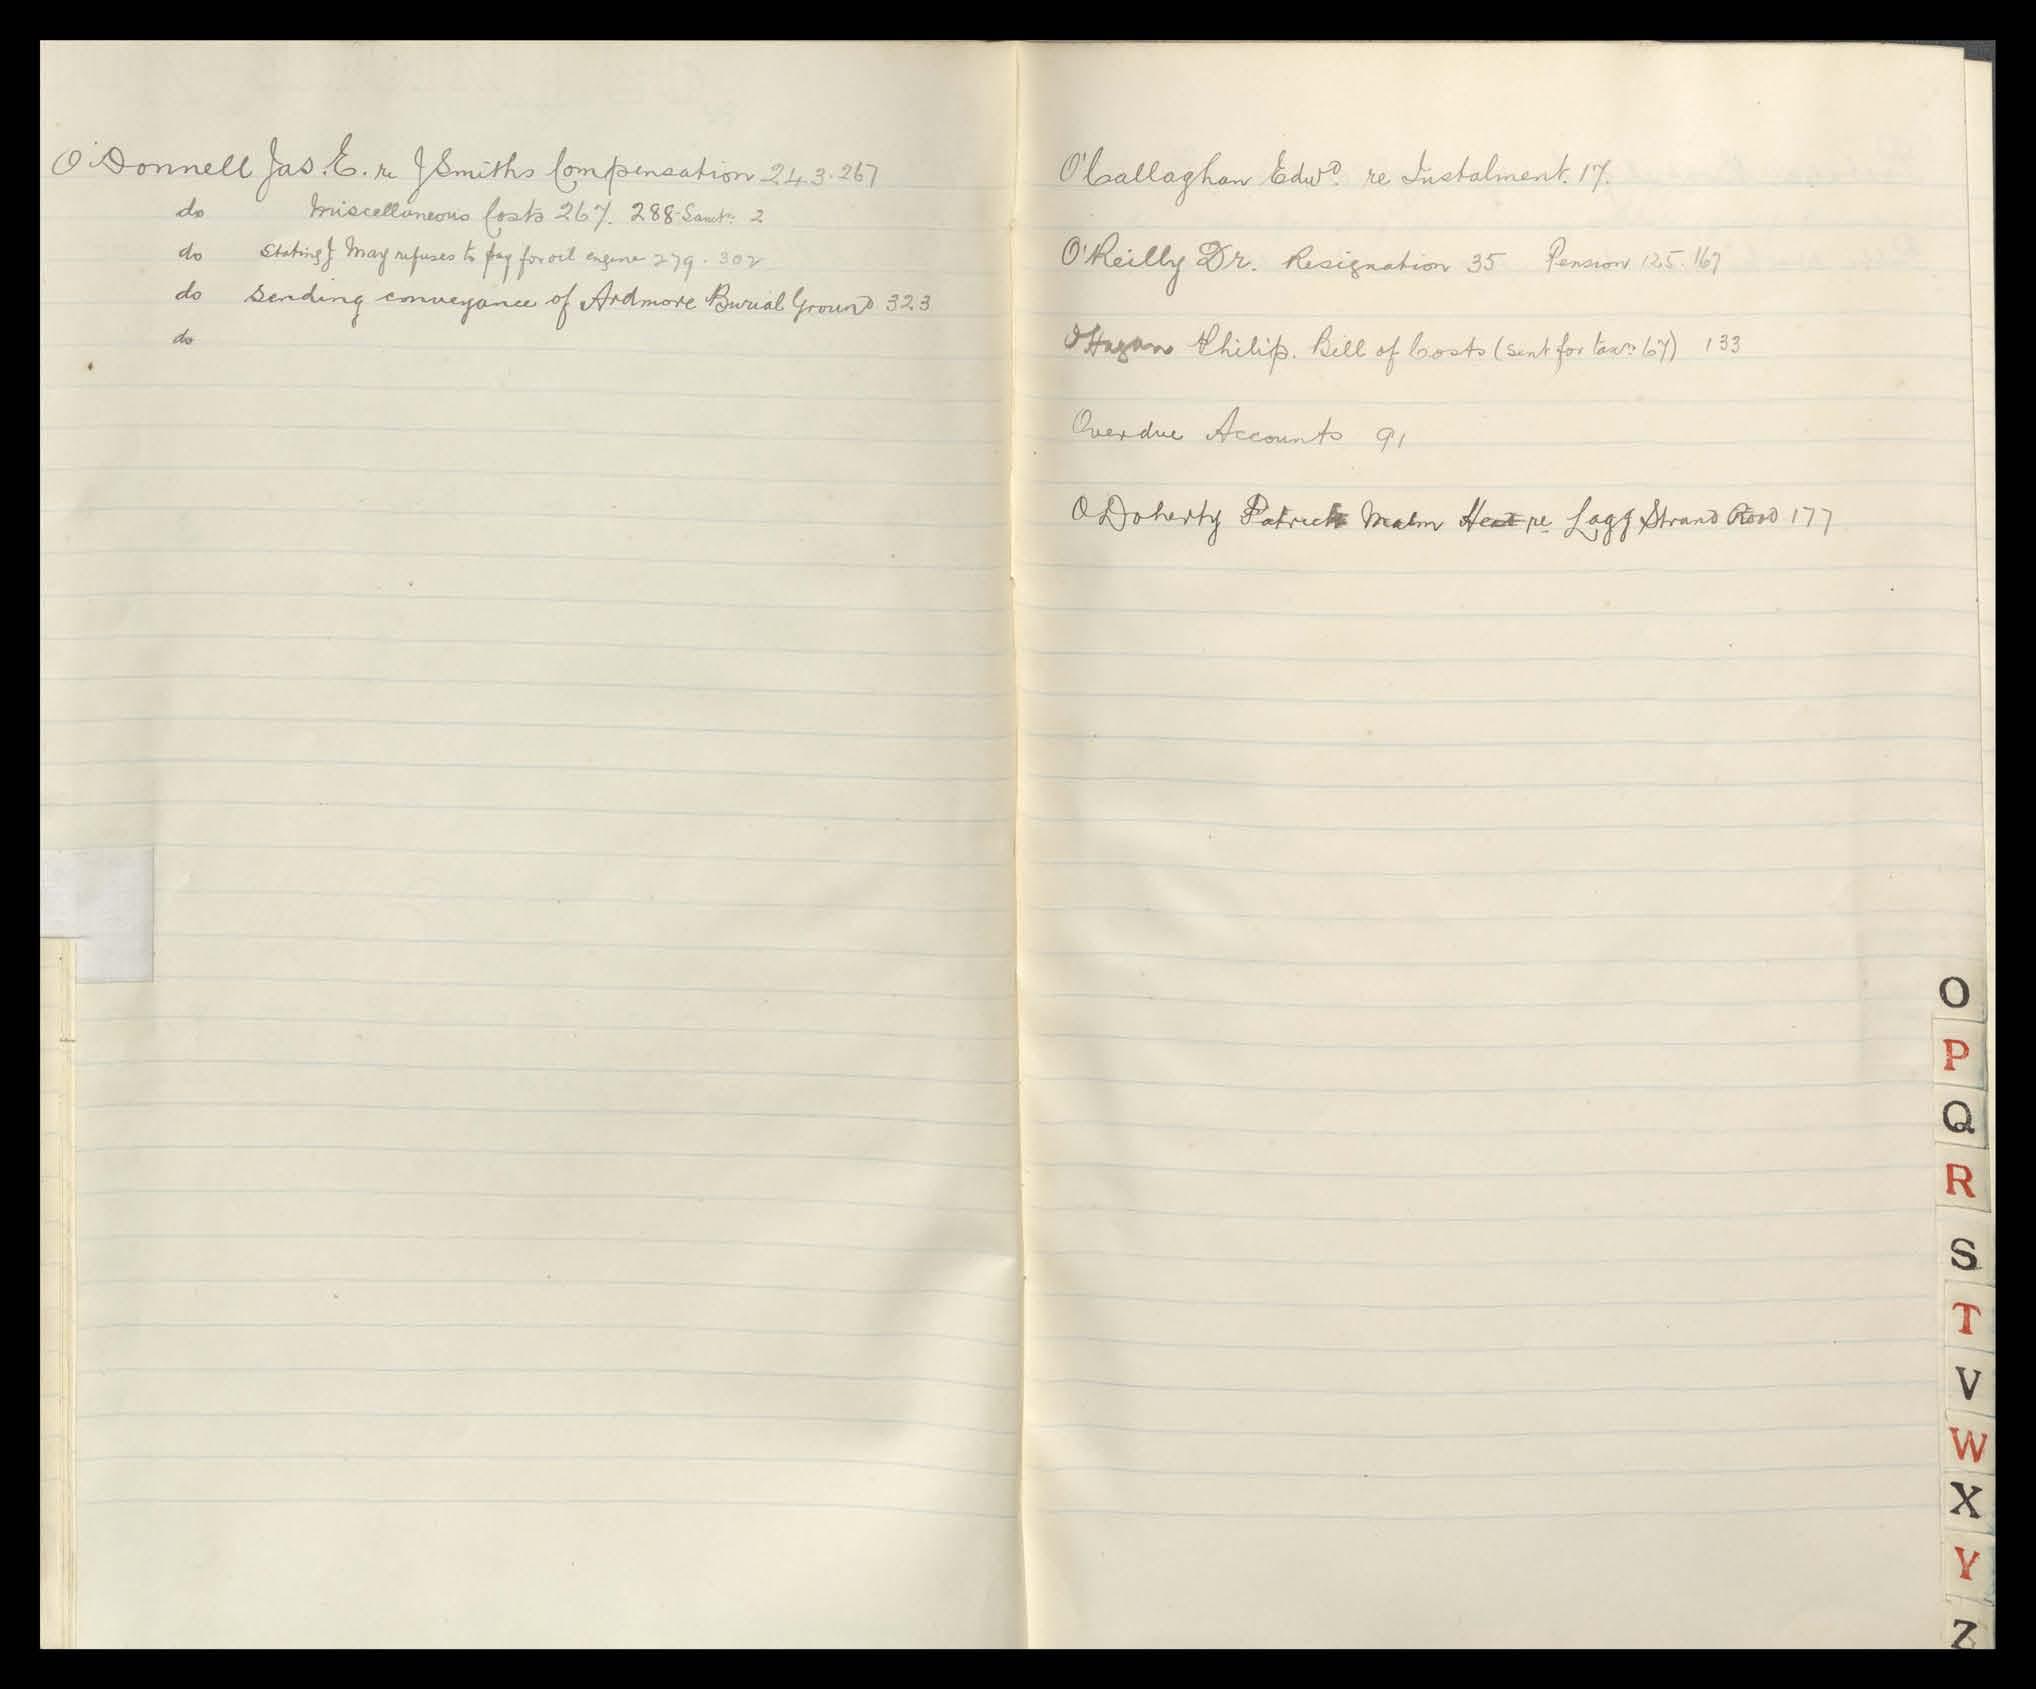 O'Donnell Jas. E. re J Smiths Compensation 243. 267
do Miscellaneous Costs 267. 288 Sanctn. 2
do Stating J May refuses to pay for oil engine 279. 302
do Sending conveyance of Ardmore Burial Ground 323
do
O'Callaghan Edwd. re Instalment. 17.
O'Reilly Dr. Resignation 35 Pension 125. 167
O'Hagan Philip. Bill of Costs (sent for taxn. 67) 133
Overdue Accounts 91
O Doherty Patrick Malin Head re Lagg Strand Road 177
O
P
Q
R
S
T
V
W
X
Y
Z